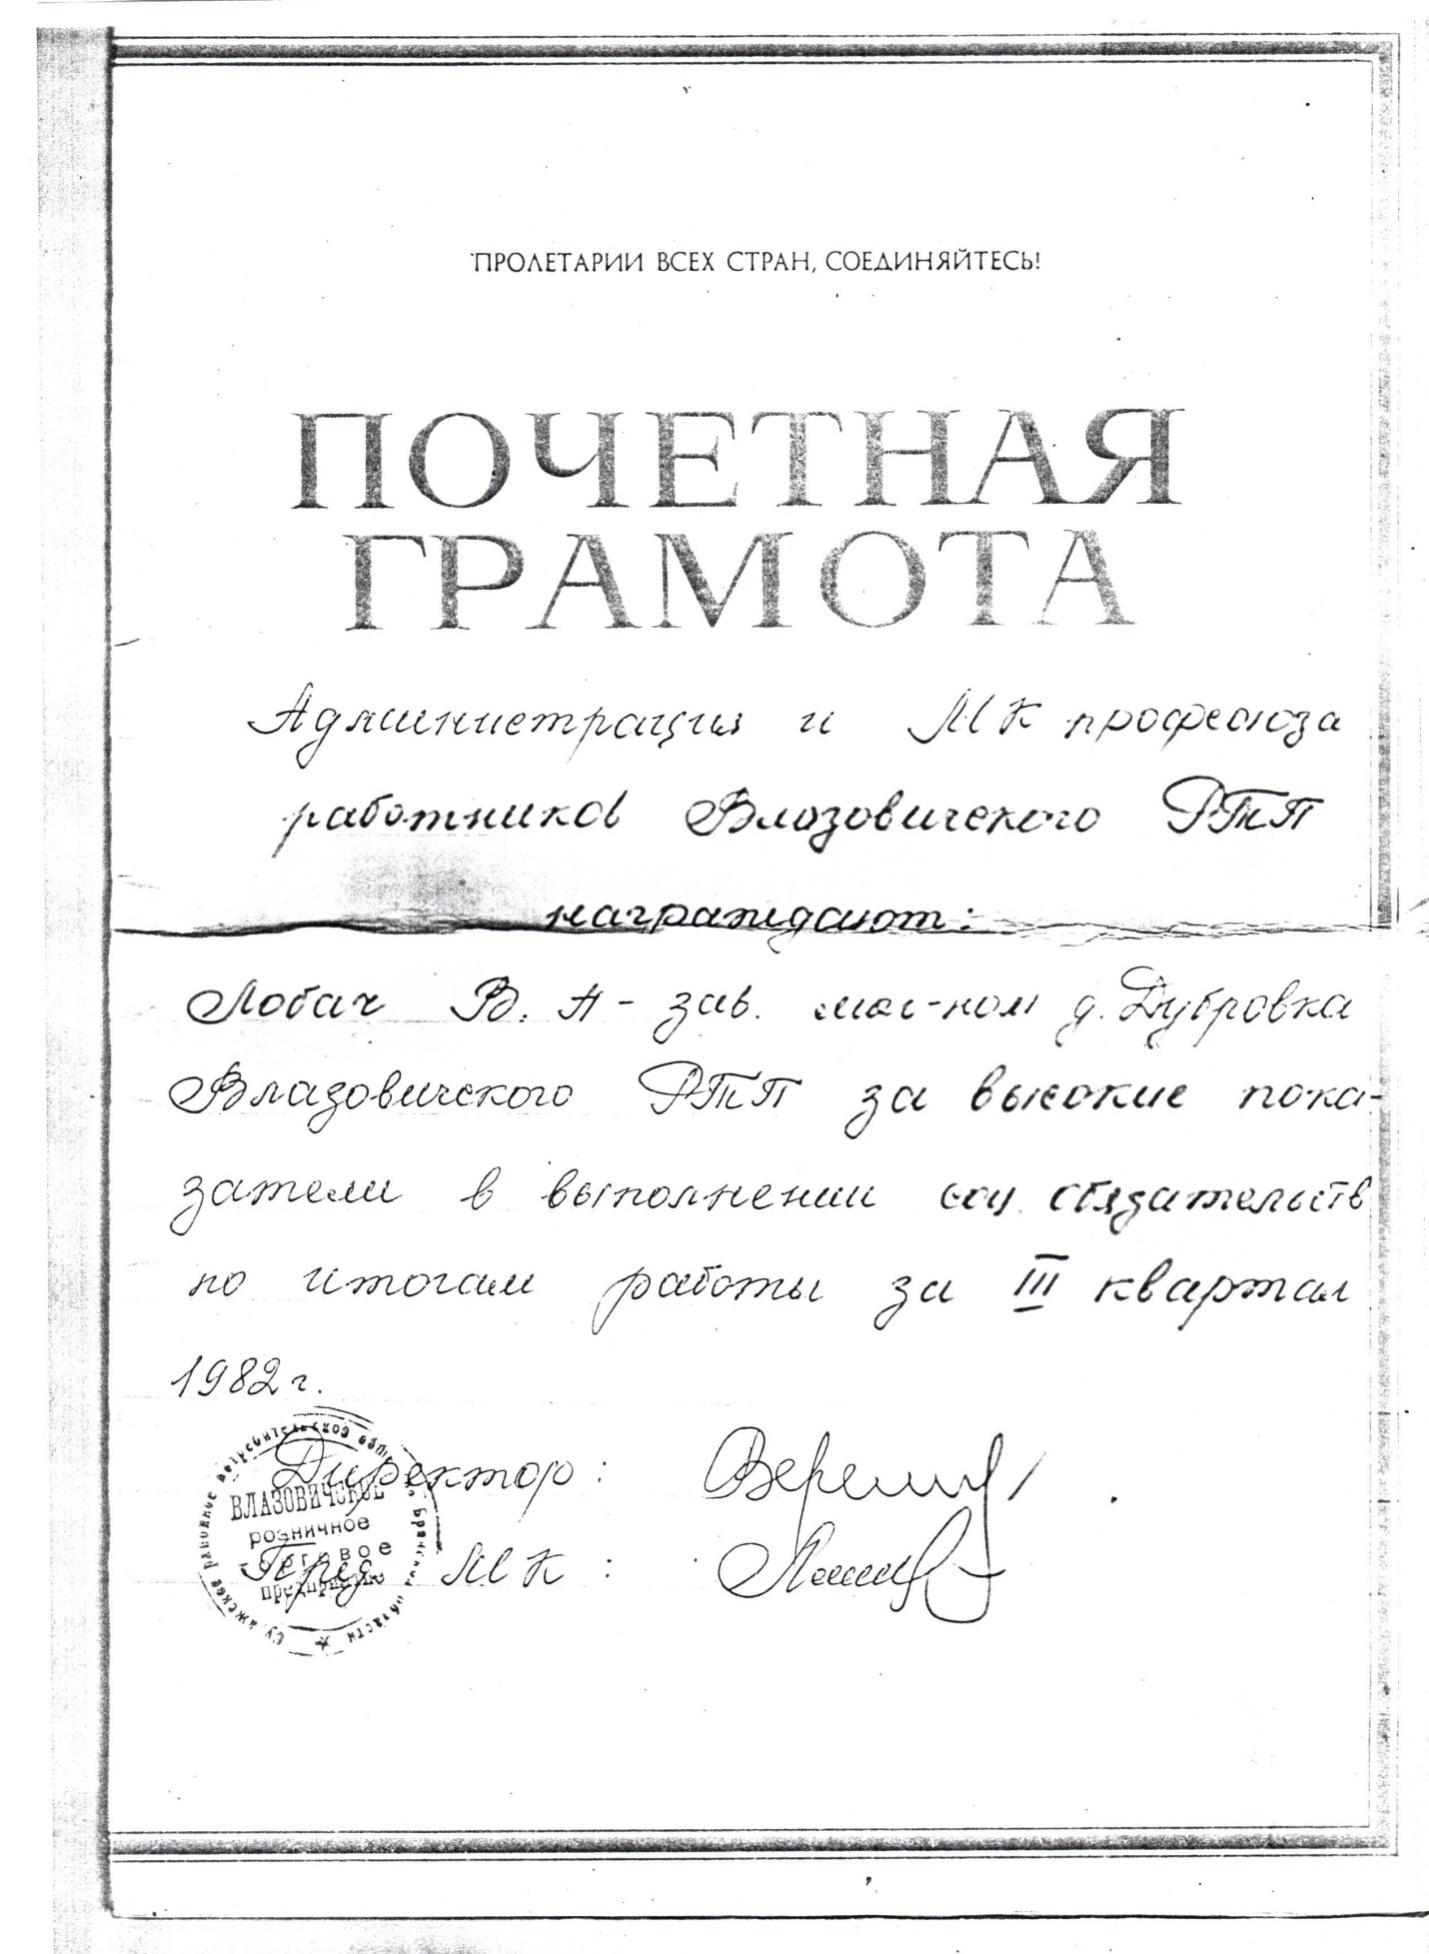 ПРОЛЕТАРИИ ВСЕХ СТРАН, СОЕДИНЯЙТЕСЬ!
ПОЧЕТНАЯ
ГРАМОТА
Администрация и МК профсоюза
работников Влазовичского РТП
награждают:
Лобач В. А - зав. маг-ном д. Дубровка
Влазовичского РТП за высокие пока-
затели в выполнении соц. обязательств
по итогам работы за III квартал
1982 г.
Директор:
Пред. МК:
ВЛАЗОВИЧСКОЕ
розничное
торговое
предприятие
районное потребительское Брянской области